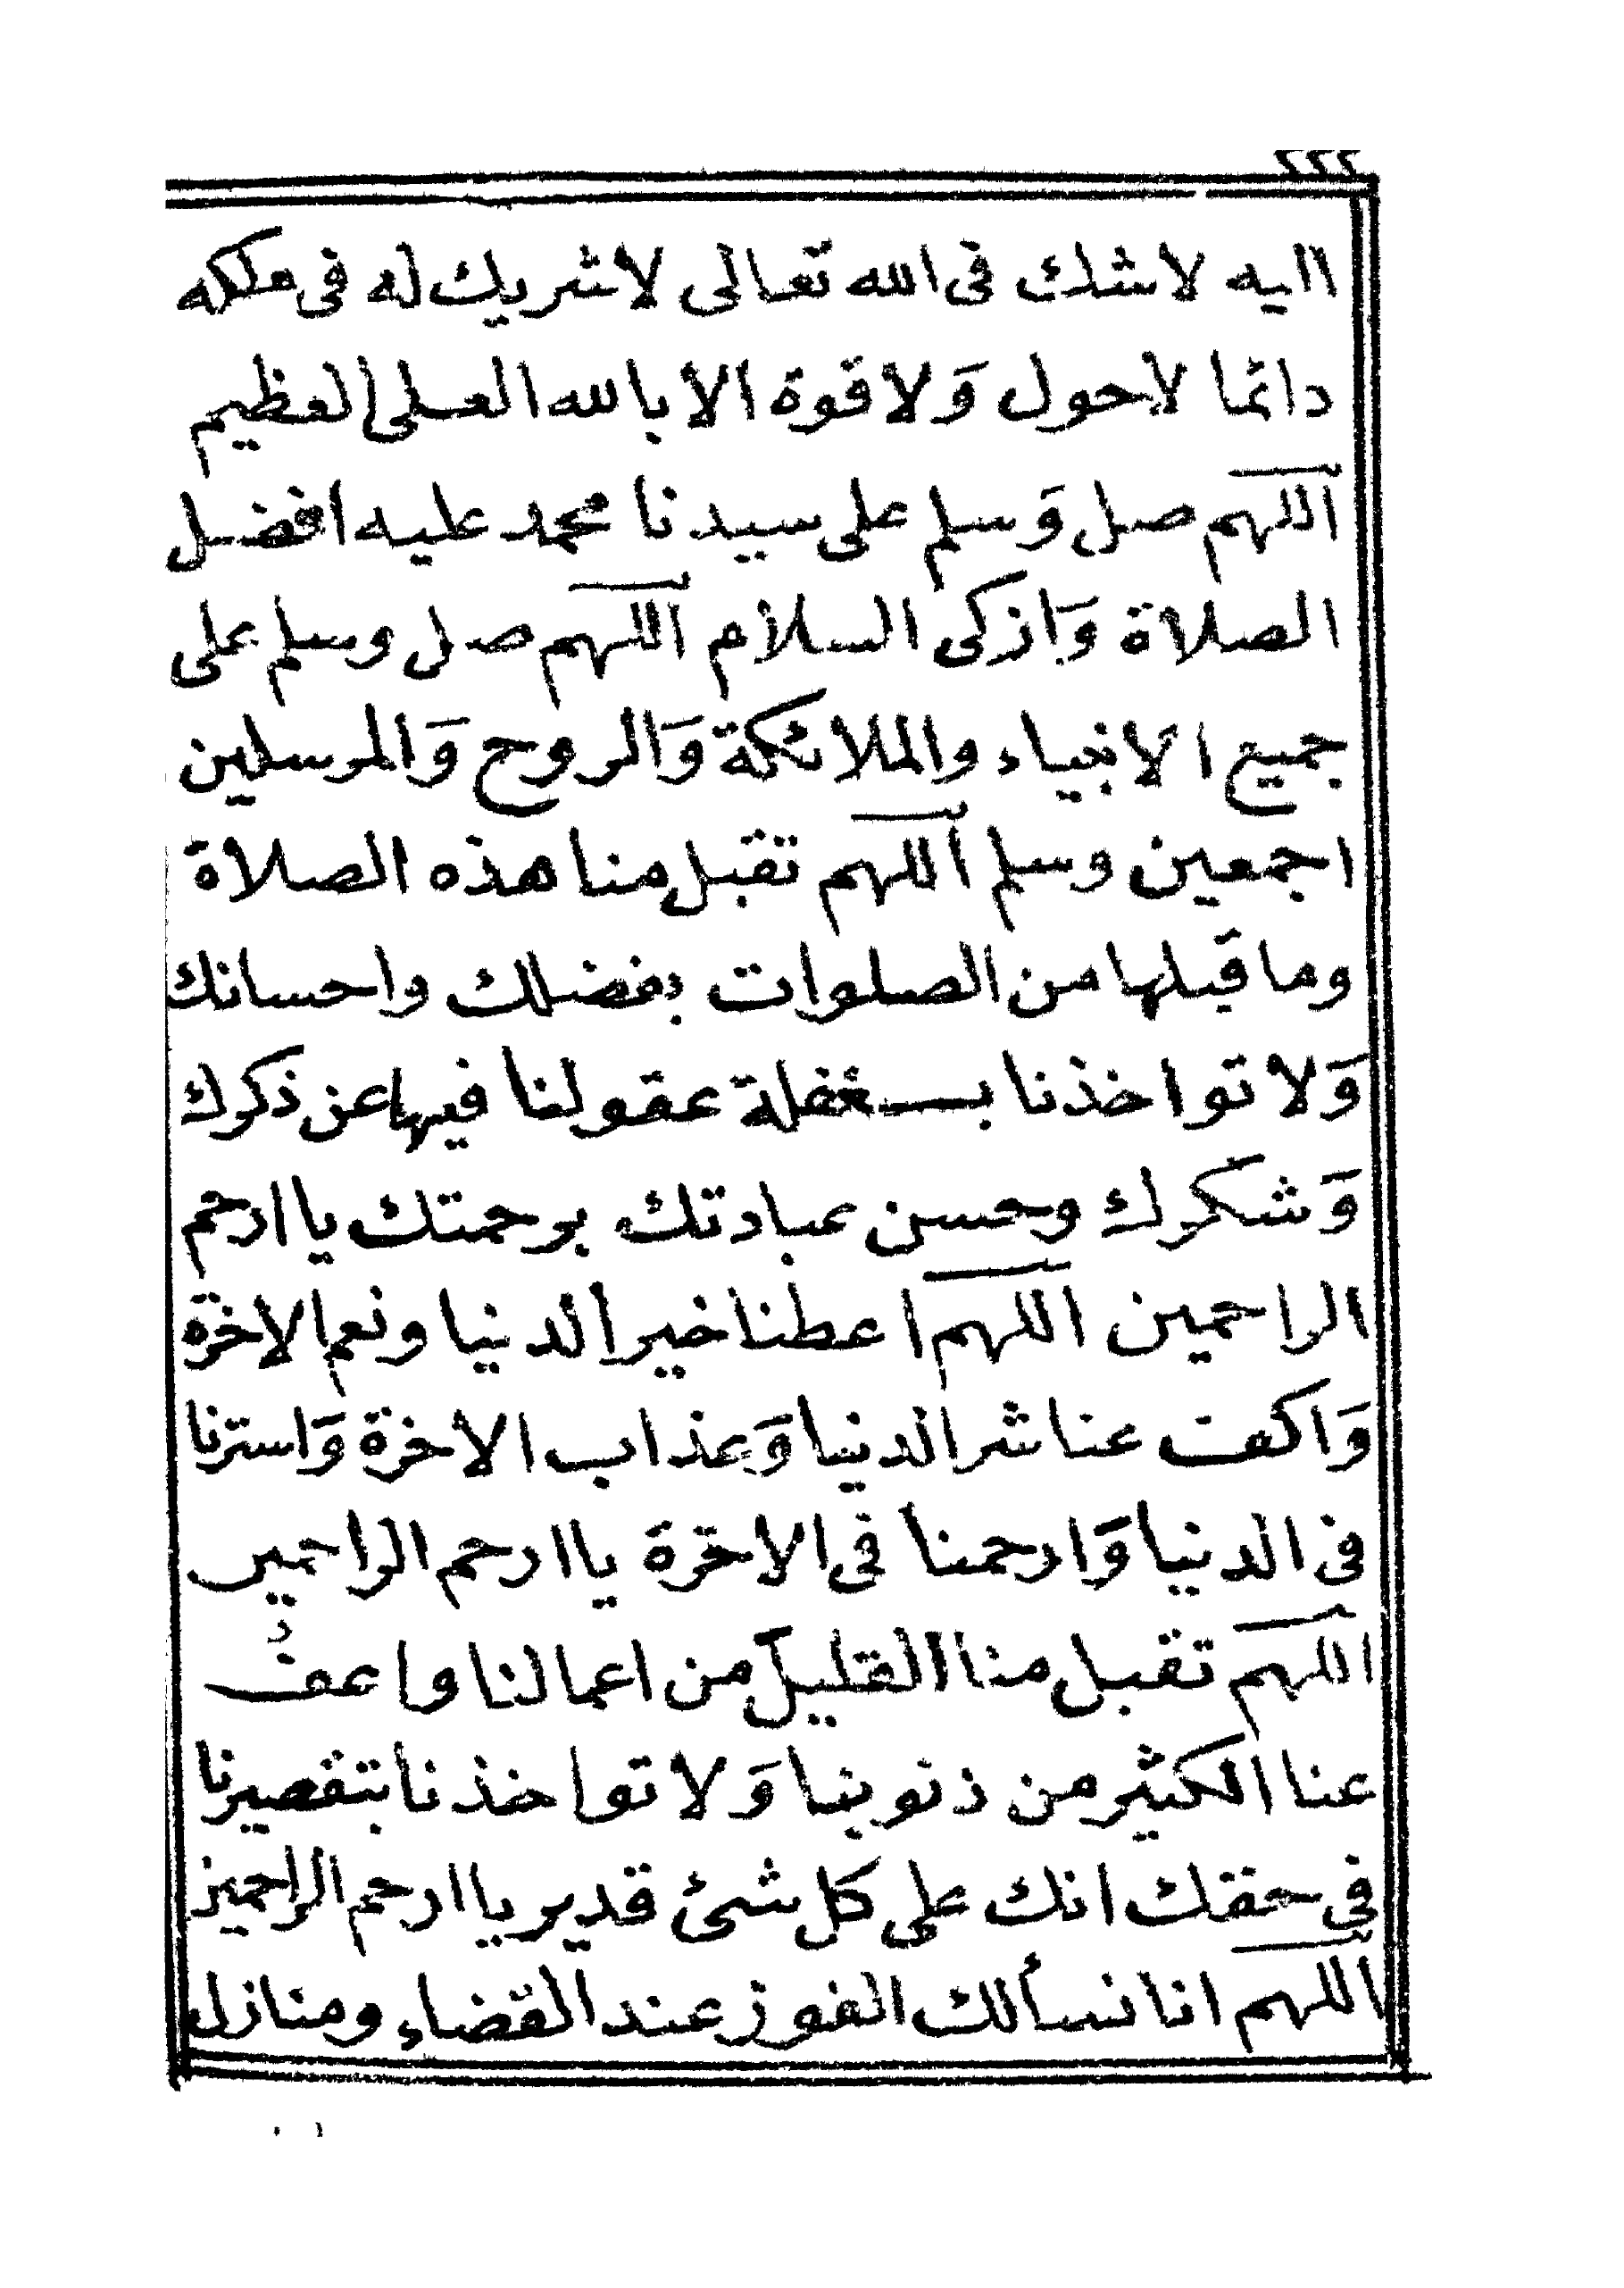 ٢٢٢
االيه لاشك فى الله تعالى لاشريك له فى ملكه
دائما لاحول وَلاقوة الا بالله العلى العظيم
اللهم صل وَسلم على سيدنا محمد عليه افضل
الصلاة وَازكى السلام اللهم صل وسلم على
جميع الانبياء والملائكة وَالروح وَالمرسلين
اجمعين وسلم اللهم تقبل منا هذه الصلاة
وما قبلها من الصلوات بفضلك واحسانك
وَلا تواخذنا بغفلة عقولنا فيها عن ذكرك
وَشكرك وحسن عبادتك برحمتك يا ارحم
الراحمين اللهم اعطنا خير الدنيا ونعم الاخرة
وَاكف عنا شر الدنيا وَعذاب الاخرة وَاسترنا
فى الدنيا وَارحمنا فى الاخرة يا ارحم الراحمين
اللهم تقبل منا القليل من اعمالنا واعف
عنا الكثير من ذنوبنا وَلا تواخذنا بتقصيرنا
فى حقك انك على كل شئ قدير يا ارحم الراحمين
اللهم انا نسألك الفوز عند القضاء ومنازل